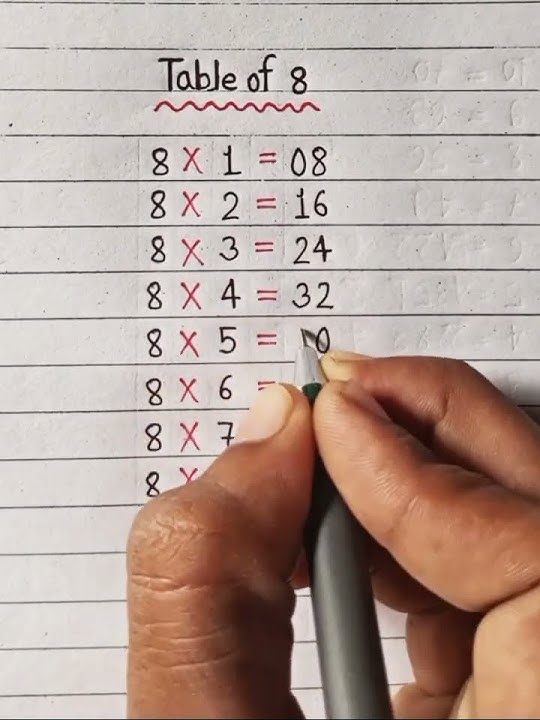 Table of 8
8 X 1 = 08
8 X 2 = 16
8 X 3 = 24
8 X 4 = 32
8 X 5 = 0
8 X 6 =
8 X 7
8 X